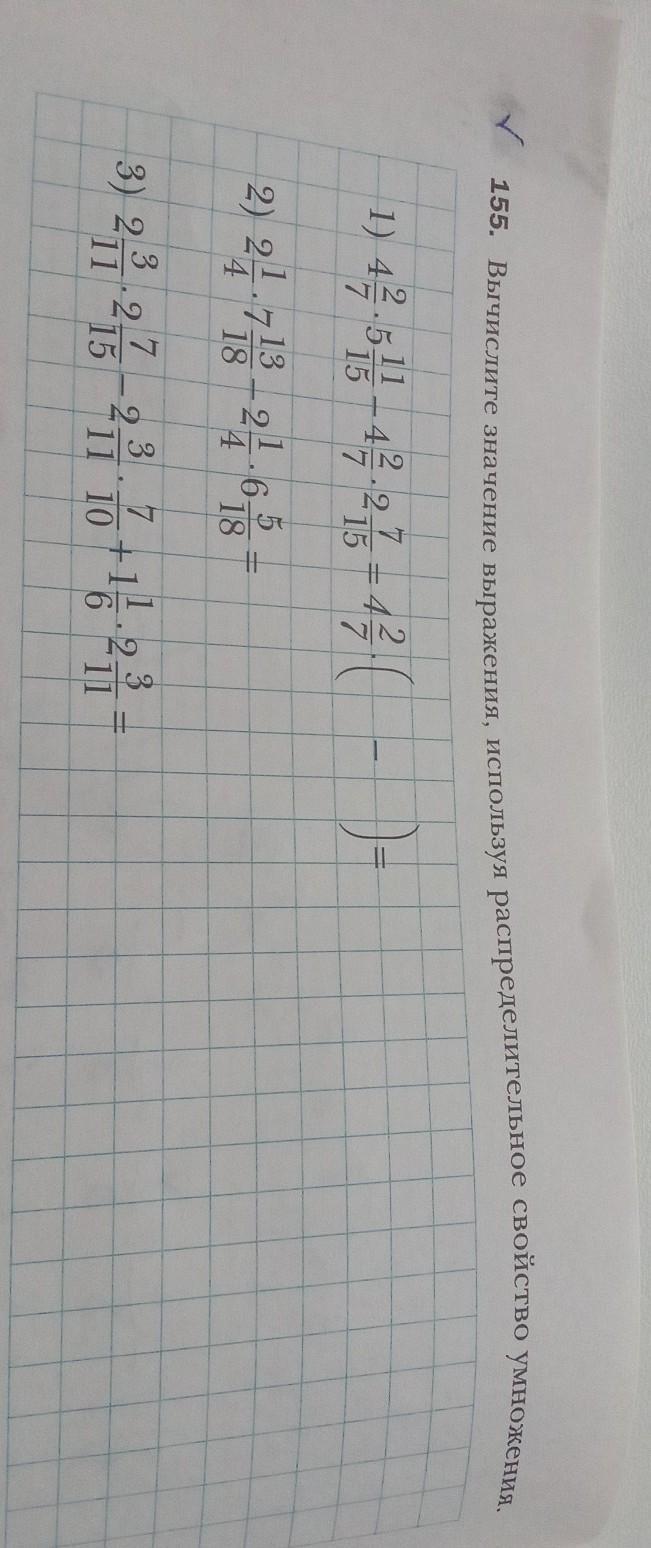 ✓ 155. Вычислите значение выражения, используя распределительное свойство умножения.
1) 4 2/7 · 5 11/15 − 4 2/7 · 2 7/15 = 4 2/7 · (   −   ) =
2) 2 1/4 · 7 13/18 − 2 1/4 · 6 5/18 =
3) 2 3/11 · 2 7/15 − 2 3/11 · 7/10 + 1 1/6 · 2 3/11 =